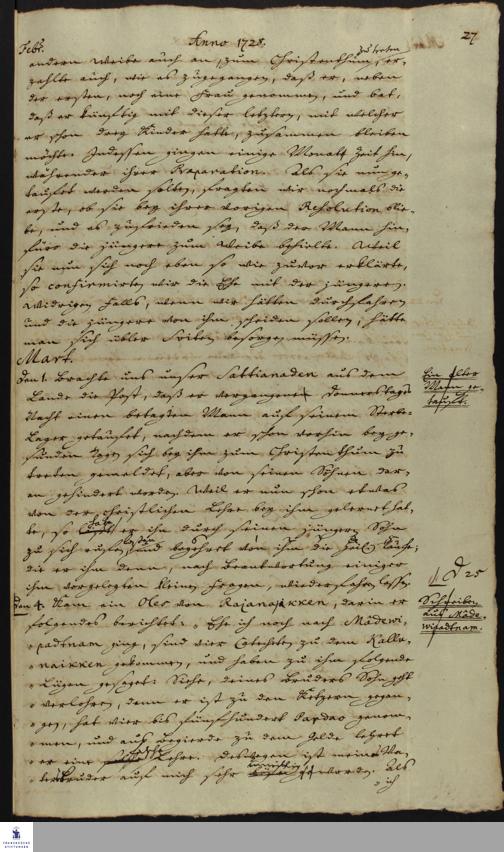 Febr. Anno 1728. 27
andern Weibe auch an, zum Christenthum zu treten, er-
zehlte auch, wie es zugegangen, daß er, neben
der ersten, noch eine Frau genommen, und bat,
daß er künftig mit dieser letztern, mit welcher
er schon drey Kinder hatte, zusammen bleiben
möchte. Indessen gingen einige Monath Zeit hin,
währender ihrer Præparation. Als sie nun ge-
tauft werden solten, fragten wir nochmals die
erste, ob sie bey ihrer vorigen Resolution blie-
be, und es zufrieden sey, daß der Mann hin-
führo die jüngere zum Weibe behielte. Weil
sie nun sich noch eben so wie zuvor erklärte,
so confirmirten wir die Ehe mit der jüngeren.
Widrigen Falls, wenn wir hätten durchfahren
und die jüngere von ihm scheiden sollen, hätte
man sich übler Suiten besorgen müssen.
Mart.
Den 1. brachte uns unser Sattianaden aus dem
Lande die Post, daß er vergangene Donnerstags
Nacht einen betagten Mann auf seinem Sterbe-
Lager getauft, nachdem er schon vorhin bey ge-
sunden Tagen sich bey ihm zum Christenthum zu
treten gemeldet, aber von seinen Söhnen dar-
an gehindert worden. Weil er nun schon etwas
von der christlichen Lehre bey ihm gelernet hat-
te, so habe er ihn durch seinen jüngern Sohn
zu sich rufen lassen, und begehrt von ihm die Heil. Taufe;
die er ihm denn, nach Beantwortung einiger
ihm vorgelegten kleinen Fragen, wiederfahren lassen.
Ein alter
Mann ge-
tauft.
Den 4. Kam ein Oles von Rajanaikken, darin er
folgendes berichtet: Ehe ich noch nach Madewi-
patnam ging, sind vier Catecheten zu dem Kallu-
naikken gekommen, und haben zu ihm folgende
Lügen gesagt: Siehe, deines Bruders Sohn geht
verlohren, denn er ist zu den Ketzern gegan-
gen, hat vier bis fünfhundert Pardao genom-
men, und aus Begierde zu dem Gelde lehret
er eine Lehre. Deswegen ist meines Va-
ters Bruder auf mich sehr geworden. Als
ich
25
Schreiben
aus Made-
wipadtnam.
FRANCKESCHE
STIFTUNGEN